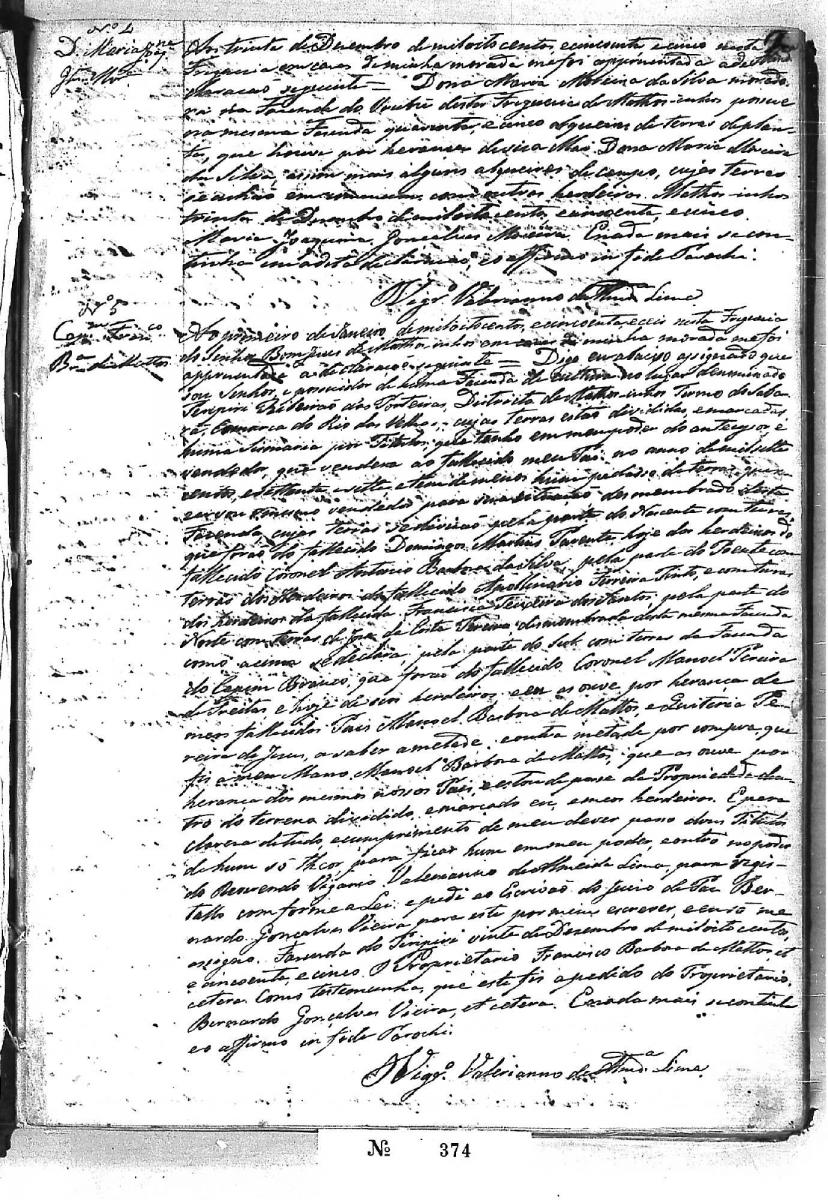 Nº 4
D. Maria
Aos trinta de Dezembro de mil oito centos, e cincoenta e cinco nesta
Freguezia em cazas de minha morada me foi appresentada a de-
claração seguinte = Dona Maria Moreira da Silva morado-
ra na Fazenda do desta Freguezia de Mathosinhos possue
na mesma Fazenda quarenta, e cinco alqueires de terras de plan-
tas, que houve por herança de sua Mai Dona Maria Moreira
da Silva, assim mais alguns alqueires de campo, cujas terras
se achão em commum com outros herdeiros. Mathosinhos
trinta de Dezembro de mil oito centos, e cincoenta, e cinco.
Maria Joaquina Gonçalves Moreira. E nada mais se con-
tinha em a dita declaração, e o affirmo in fide Parochi.
O Vigrº. Valerianno de Almdª. Lima
Nº 5
Capm. Franco
Bª. de Mattos
Ao primeiro de Janeiro de mil oito centos, e cincoenta e seis nesta Freguezia
do Senhor Bom Jesus de Mathosinhos em cazas de minha morada me foi
appresentada a declaração seguinte = Digo eu abaixo assignado que
sou Senhor, e possuidor de huma Fazenda de cultura no lugar denominado
Peripiri Ribeirão das Districto de Mathosinhos Termo do Saba-
rá, Comarca do Rio das Velhas, cujas terras estão divididas, e marcadas
huma Sismaria por Titulos, que tenho em meu poder do antecessor e
vendedor, que vendera ao fallecido meu Pai no anno de mil sette
centos, e settenta e sette e tendo menos hum pedaço de terra, que
vendido para sua situação desmembrado desta
Fazenda, cujas terras se divizão pela parte do Nascente com terras
que forão do fallecido Domingos Martins hoje dos herdeiros do
fallecido Coronel Antonio Barboza da Silva, pela parte do Poente com
terras dos Herdeiros do fallecido Apolinario Ferreira Pinto, e com terras
dos herdeiros da fallecida Francisca Teixeira dos Santos, pela parte do
Norte com terras de José da Costa Pereira desmembrada desta mesma Fazenda
como acima se declara, pela parte do Sul com terras da Fazenda
do Capim Branco, que forão do fallecido Coronel Manoel Pereira
de Freitas e hoje de seus herdeiros e eu as ouve por herança de
meus fallecidos Pais Manoel Barboza de Mattos, e Quiteria Pe-
reira de Jesus, a saber a metade, e outra metade por compra, que
fis a meu Mano Manoel Barboza de Mattos, que as ouve por
herança dos mesmos nossos Pais, e estou de posse da Propriedade den-
tro do terreno dividido, e marcado eu, e meos herdeiros. E para
clareza de tudo, e cumprimento de meu dever passo dous Titulos
de hum só theor, para ficar hum em meu poder, e outro no poder
do Reverendo Vigario Valerianno de Almeida Lima, para regis-
tallo comforme a Lei, e pedi ao Escrivão do Juizo de Paz Ber-
nardo Gonçalves Vieira para este por mim escrever, e eu só me
assigno. Fazenda do Peripiri vinte de Dezembro de mil oito centos,
e cincoenta, e cinco. O Proprietario Francisco Barboza de Mattos, et
cetera. Como testemunha, que este fis a pedido do Proprietario,
Bernardo Gonçalves Vieira, et cetera. E nada mais se continha
e o affirmo in fide Parochi.
O Vigrº. Valerianno de Almdª. Lima
Nº 374